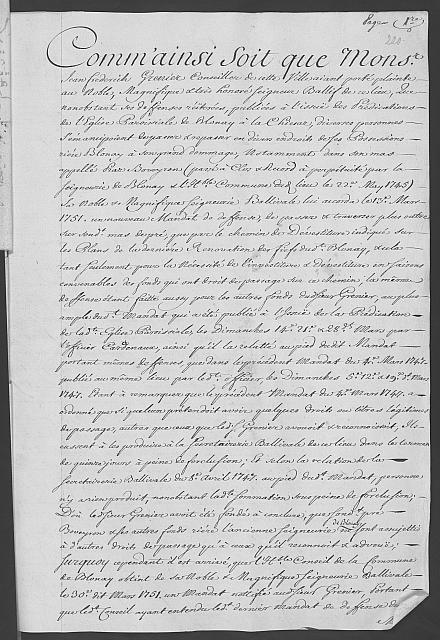 Page 1.re
220.
Comm'ainsi Soit que Mons.r
Jean frederich Grenier Conseiller de cette Ville aiant porté plainte
au Noble, Magnifique & très honoré Seigneur Ballif de ce lieu, que
nonobstant ses défenses réiterées, publiées à l'issue des Prédications
de l'Eglise Paroissiale de Blonay à la Chiesaz, diverses personnes
s'émancipoient de passer & repasser en divers endroits de ses Possessions
rière Blonay à son grand dommage, Notamment dans son mas
appellé dias Boveyres (passé à Clos & Record à perpétuité par la
Seigneurie de Blonay & l'H.ble Commune dud. lieu le 22.e May 1745)
Sa Noble & Magnifique Seigneurie Ballivale lui accorda le 13.e Mars
1751. un nouveau Mandat de defense, de passer & traverser plus outre
sur sond. mas de pré, que par le chemin de Dévestiture indiqué sur
les Plans de la dernière Renovation des fiefs dud. Blonay, & cela
tant seulement pour la Nécessité de l'investiture & dévestiture en saisons
convenables des fonds qui ont droit de passage sur ce chemin, la même
defense étant faitte aussi pour les autres fonds dud. Sieur Grenier, au plus
ample dud. Mandat qui a été publié à l'issue de la Prédication
de lad. Eglise Paroissiale, les Dimanches 14.e 21.e & 28.e Mars par
l'officier Cardinaux, ainsi qu'il la relatté au pied de dit Mandat
portant mêmes défences, que dans le précédent Mandat du 4.e Mars 1747.
publié au même lieu par led. Officier, les Dimanches 5.e 12.e & 19.e d. Mars
1747. Etant à remarquer que le précédent Mandat du 4.e Mars 1747. a
ordonné que si quelcun prétendoit avoir quelques droits ou titres légitimes
de passage, autres que ceux que led. Sieur Grenier avouoit & reconnoissoit, ils
eussent à les produire à la Secretairerie Ballivale de ce lieu dans le terme
de quinze jours à peine de forclusion; Et selon la relation de la
Secretairerie Ballivale du 8.e Avril 1747. au pied dud. Mandat, personne
n'y a rien produit, nonobstant lad. sommation sous peine de forclusion;
D'où led. Sieur Grenier avoit été fondé à conclure, que sond. pré
Boveyres & ses autres fonds rière l'ancienne Seigneurie de Blonay ne sont assujettis
à d'autres droits de passage qu'à ceux qu'il reconnoit & advouë;
surquoy cependant il est arrivé, que l'H.ble Conseil de la Commune
de Blonay obtint de sa Noble & Magnifique Seigneurie Ballivale
le 30.e dit Mars 1751. un Mandat notifié aud. Sieur Grenier, Portant
que led. Conseil ayant entendu led. dernier Mandat de defense du